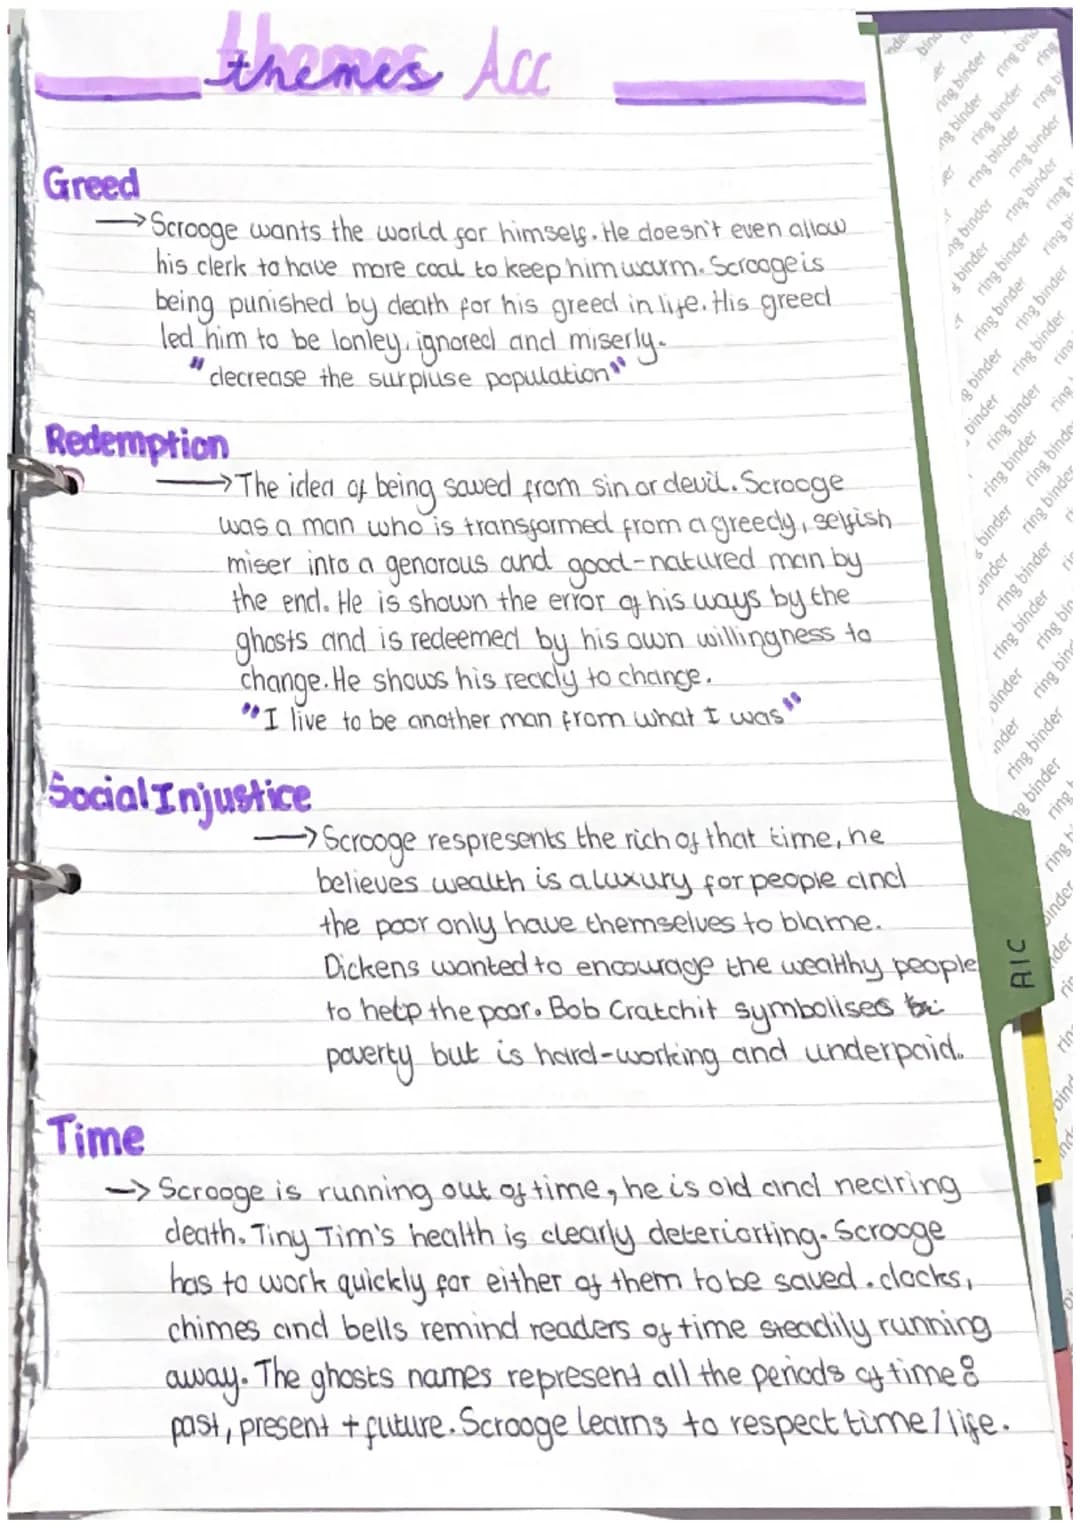 themes ACC
Greed
→ Scrooge wants the world for himself. He doesn't even allow
his clerk to have more coal to keep him warm. Scrooge is
being punished by death for his greed in life. His greed
led him to be lonley, ignored and miserly.
"decrease the surpluse population"
Redemption
→ The idea of being saved from sin or devil. Scrooge
was a man who is transformed from a greedy, selfish
miser into a genorous and good-natured man by
the end. He is shown the error of his ways by the
ghosts and is redeemed by his own willingness to
change. He shows his ready to change.
"I live to be another man from what I was"
Social Injustice
→ Scrooge respresents the rich of that time, he
believes wealth is a luxury for people and
the poor only have themselves to blame.
Dickens wanted to encourage the wealthy people
to help the poor. Bob Cratchit symbolises
poverty but is hard-working and underpaid.
Time
→ Scrooge is running out of time, he is old and nearing
death. Tiny Tim's health is clearly deteriorting. Scrooge
has to work quickly for either of them to be saved. clocks,
chimes and bells remind readers of time steadily running
away. The ghosts names represent all the periods of time:
past, present + future. Scrooge learns to respect time/life.
AIC
ring binder
ring binder
ring binder
ring binder
ring binder
ring binder
ring binder
ring binder
ring binder
ring binder
ring binder
ring binder